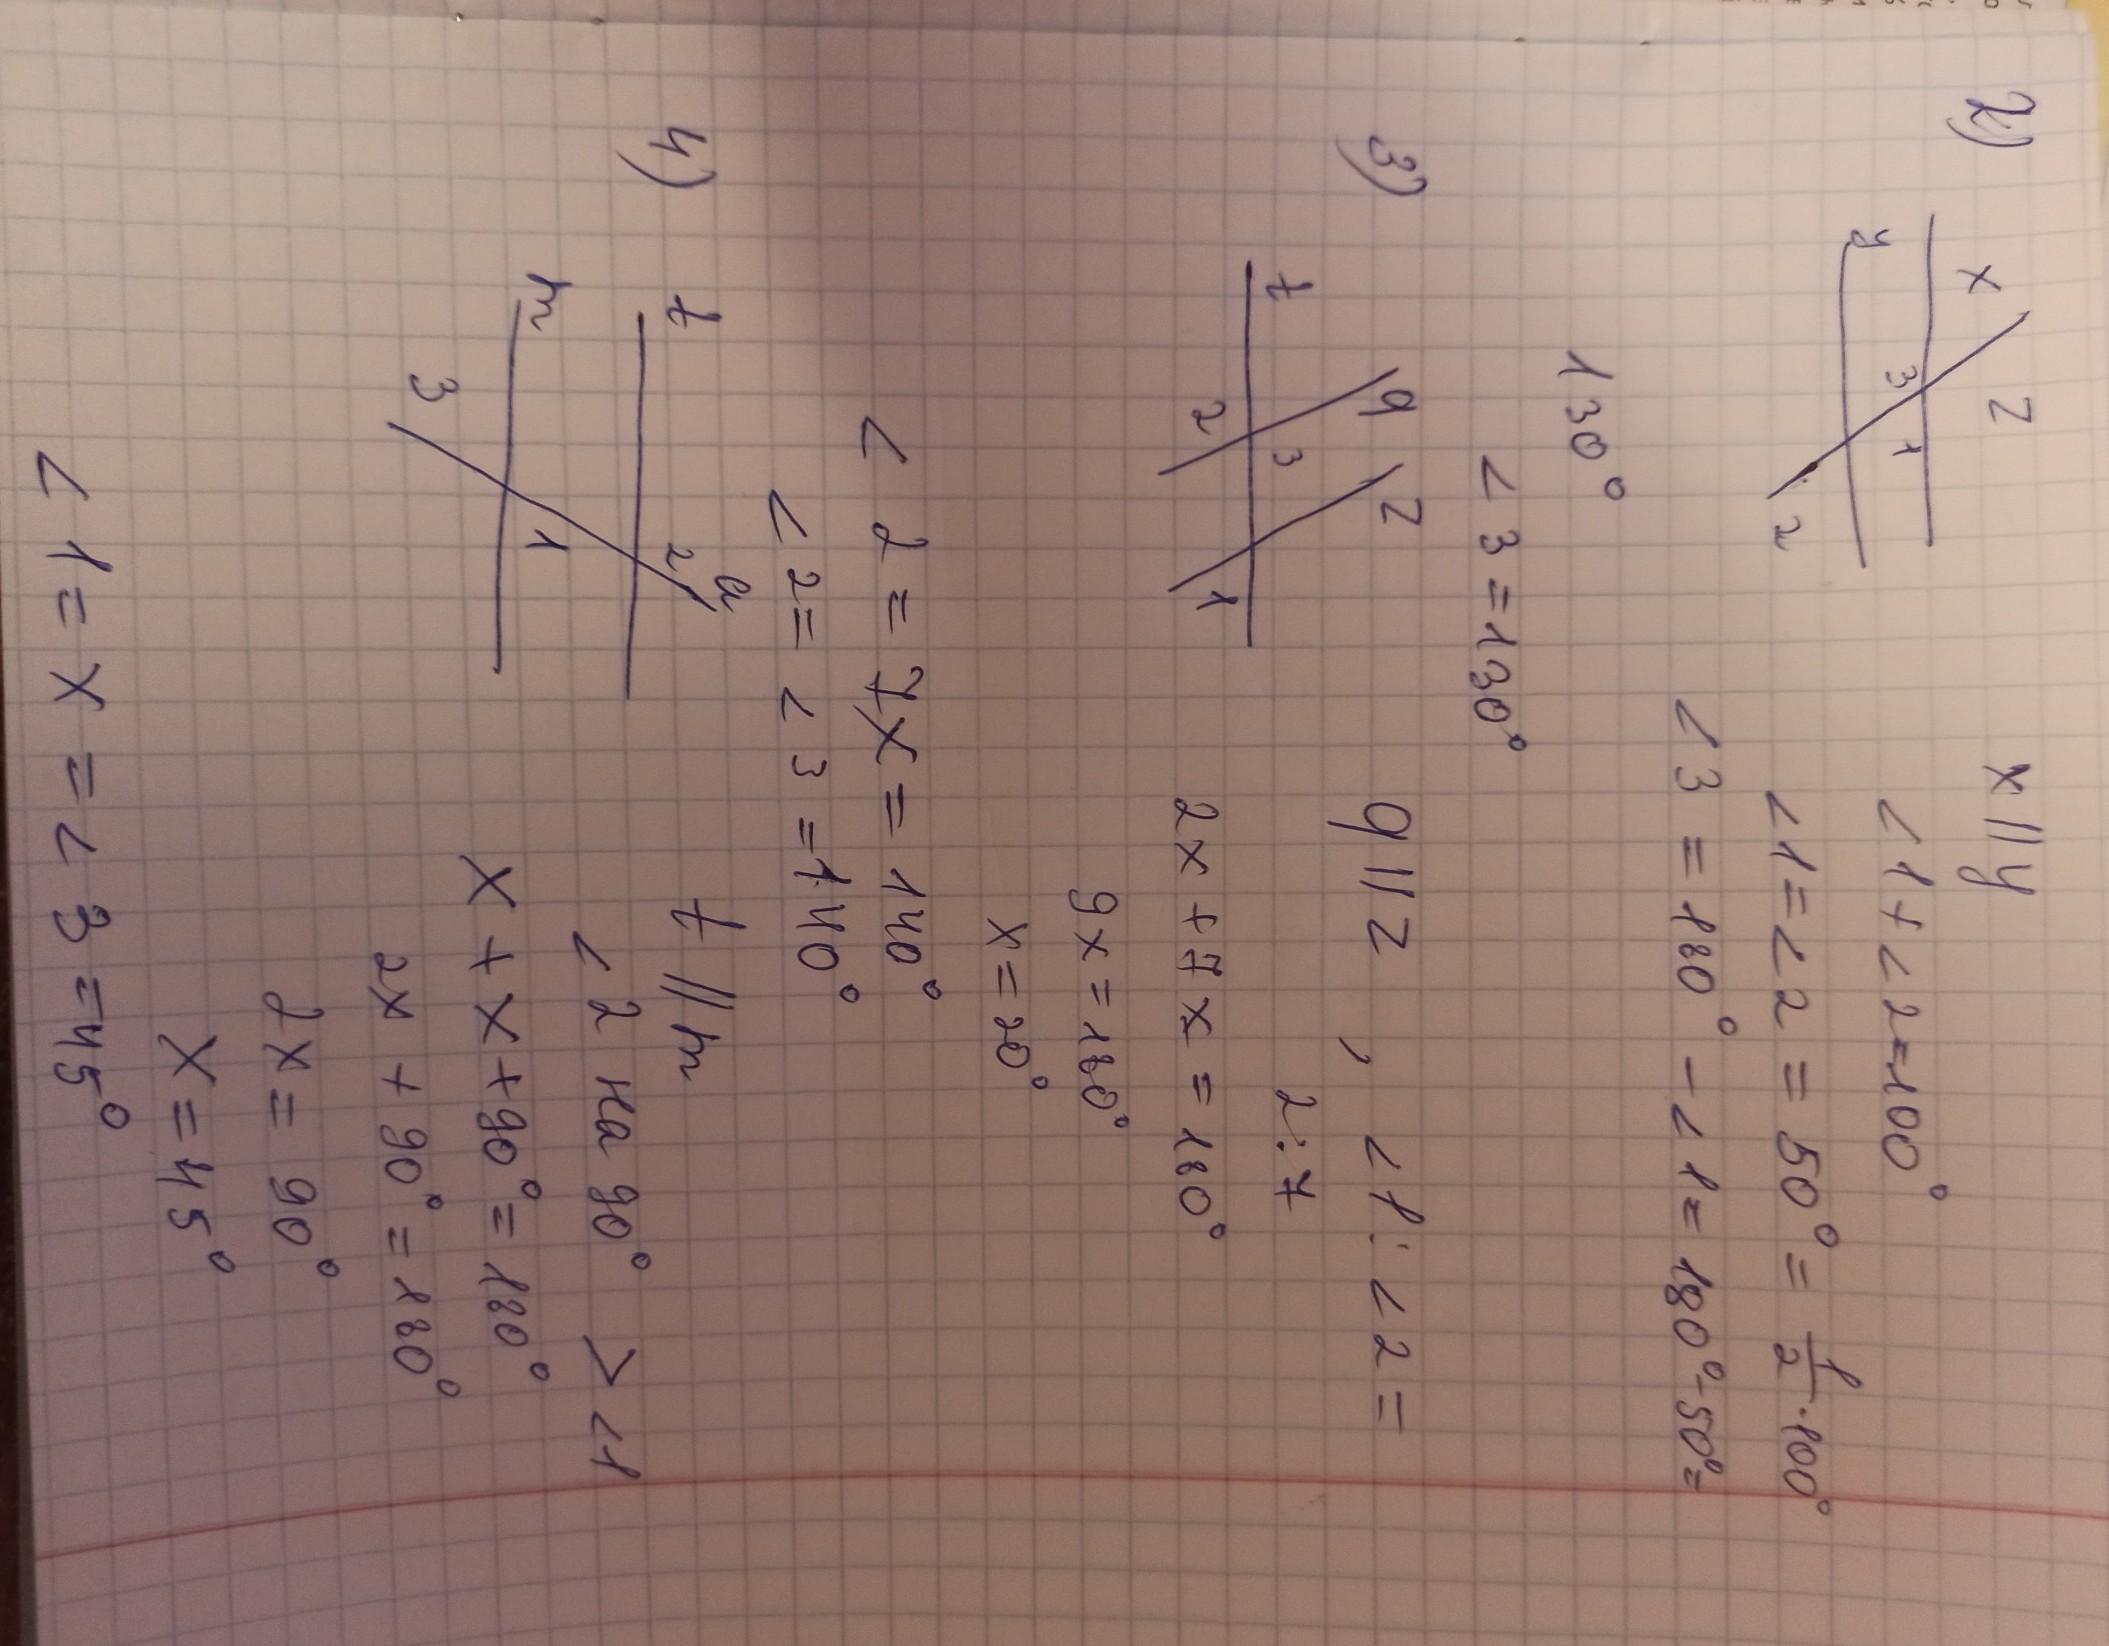 2)
x
z
y
3
1
2
x || y
∠1 + ∠2 = 100°
∠1 = ∠2 = 50° = 1/2 · 100°
∠3 = 180° - ∠1 = 180° - 50° =
130°
∠3 = 130°
3)
q
z
t
3
2
1
q || z , ∠1 : ∠2 =
2 : 7
2x + 7x = 180°
9x = 180°
x = 20°
∠2 = 7x = 140°
∠2 = ∠3 = 140°
4)
t
a
2
m
1
3
t || m
∠2 на 90° > ∠1
x + x + 90° = 180°
2x + 90° = 180°
2x = 90°
x = 45°
∠1 = x = ∠3 = 45°